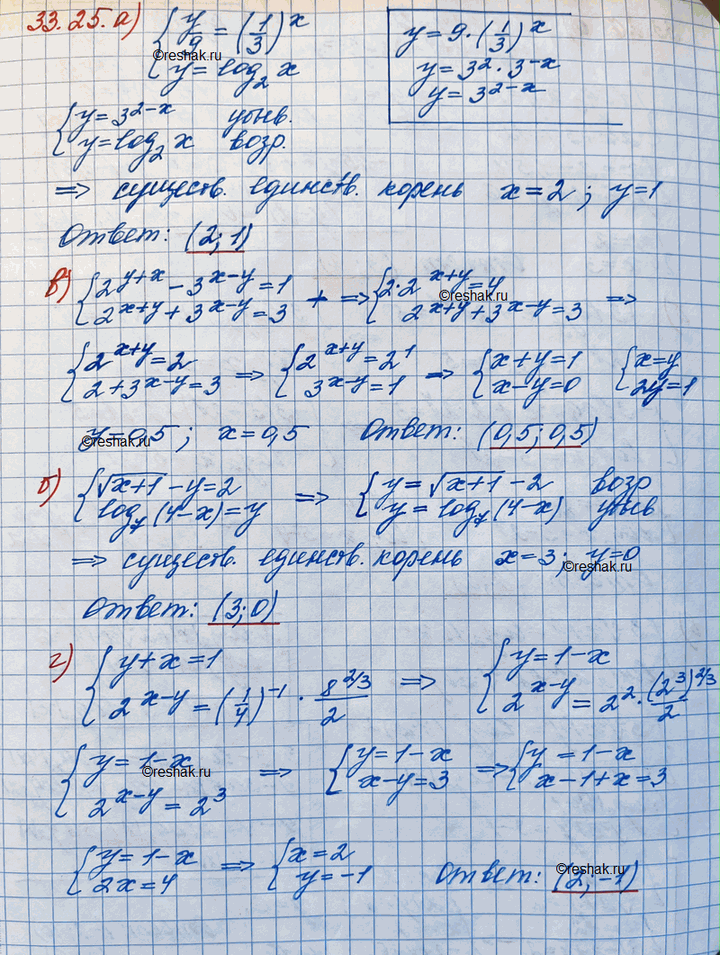 33.25. а) { y/9 = (1/3)^x
y = log₂ x
y = 9 · (1/3)^x
y = 3² · 3^(-x)
y = 3^(2-x)
{ y = 3^(2-x) убыв.
y = log₂ x возр.
=> существ. единств. корень x = 2; y = 1
Ответ: (2; 1)
в) { 2^(y+x) - 3^(x-y) = 1
2^(x+y) + 3^(x-y) = 3 + => { 2·2^(x+y) = 4
2^(x+y) + 3^(x-y) = 3 =>
{ 2^(x+y) = 2
2 + 3^(x-y) = 3 => { 2^(x+y) = 2¹
3^(x-y) = 1 => { x + y = 1
x - y = 0 { x = y
2y = 1
y = 0,5; x = 0,5 Ответ: (0,5; 0,5)
б) { √(x+1) - y = 2
log₇ (4-x) = y => { y = √(x+1) - 2 возр
y = log₇ (4-x) убыв
=> существ. единств. корень x = 3; y = 0
Ответ: (3; 0)
г) { y + x = 1
2^(x-y) = (1/4)^(-1) · 8^(2/3)/2 => { y = 1 - x
2^(x-y) = 2² · (2³)^(2/3)/2
{ y = 1 - x
2^(x-y) = 2³ => { y = 1 - x
x - y = 3 => { y = 1 - x
x - 1 + x = 3
{ y = 1 - x
2x = 4 => { x = 2
y = -1 Ответ: (2; -1)
©reshak.ru
©reshak.ru
©reshak.ru
©reshak.ru
©reshak.ru
©reshak.ru